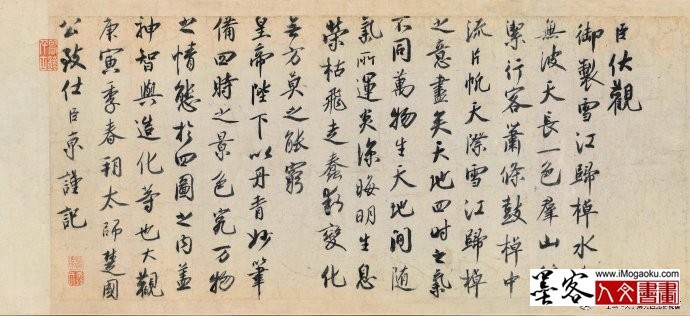 臣伏觀
御製雪江歸棹水
無波天長一色羣山
潔行客蕭條鼓棹中
流片帆天際雪江歸棹
之意盡矣天地四時之氣
不同萬物生天地間隨
氣所運炎涼晦明生息
榮枯飛走蠢動變化
無方莫之能窮
皇帝陛下以丹青妙筆
備四時之景色究万物
之情態於四圖之內蓋
神智與造化等也大觀
庚寅季春朔太師楚國
公致仕臣京謹記
墨客
www.iMogaoku.com
人文書畫